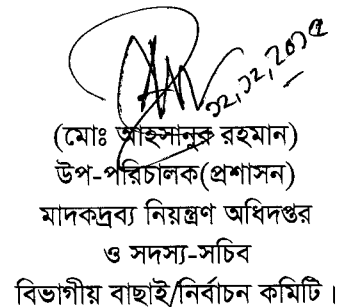 ১২,১২,২০১৫
(মোঃ আহসানুর রহমান)
উপ-পরিচালক(প্রশাসন)
মাদকদ্রব্য নিয়ন্ত্রণ অধিদপ্তর
ও সদস্য-সচিব
বিভাগীয় বাছাই/নির্বাচন কমিটি।